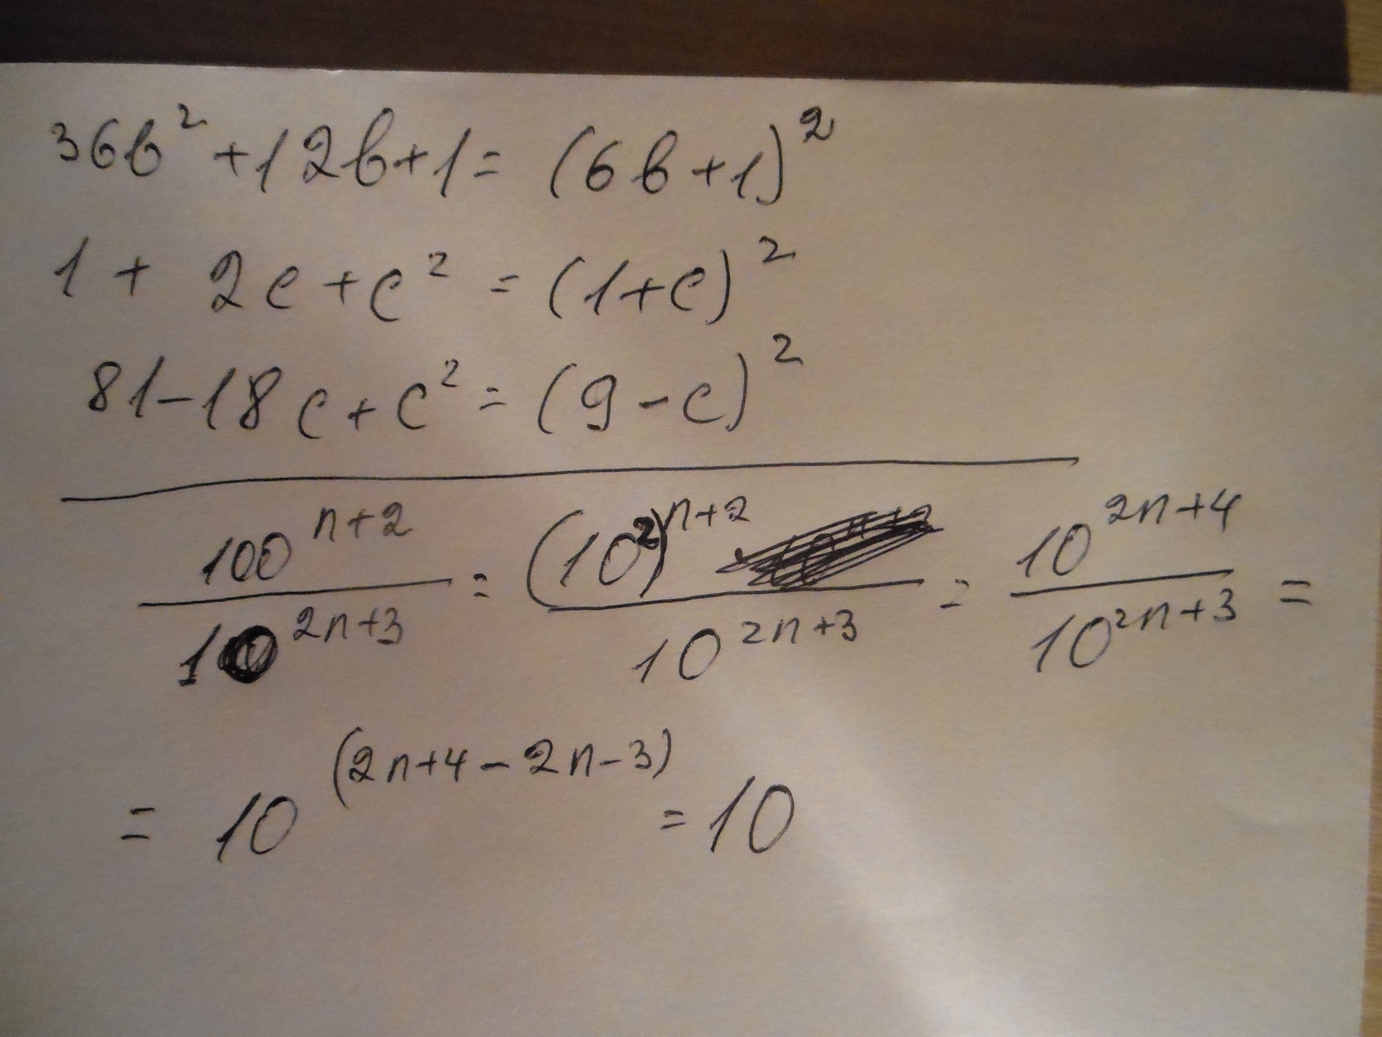 36b² + 12b + 1 = (6b + 1)²
1 + 2c + c² = (1 + c)²
81 - 18c + c² = (9 - c)²
100^(n+2) / 10^(2n+3) = (10²)^(n+2) / 10^(2n+3) = 10^(2n+4) / 10^(2n+3) =
= 10^(2n+4-2n-3) = 10